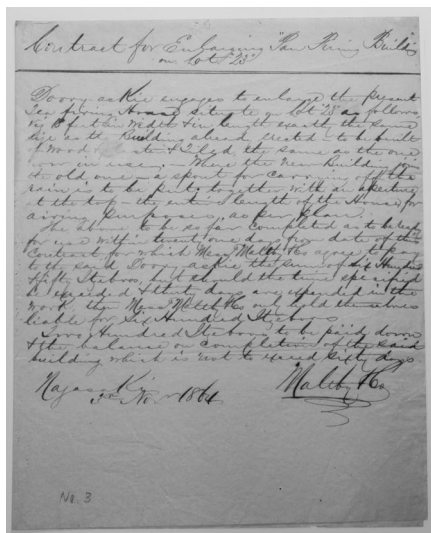 Contract for Enlarging "Pan Firing" Building
on Lot "23"
Dooryaskie engages to enlarge the present
Tea firing House situate on Lot "23" as follows
feet in Width & in length exactly the same
size as the Building already erected - to be built
of Wood & the same as the one
now in use. - Where the New Building joins
the old one - a spout for carrying off the
rain is to be put, together with an aperture
at the top - the entire length of the House for
airing purposes, as per plan.
The above to be so far completed as to be
for use within twenty one days from date of this
Contract for which Messrs Maltby & Co agree to pay
to the said Dooryaskie the sum of Six Hundred
& fifty Itzeboos, but should that time specified
be exceeded & that days are expended in the
work, then Messrs Maltby & Co only hold themselves
liable for Six Hundred Itzeboos
Two Hundred Itzeboos to be paid down
& the balance on completion of the said
building which is not to exceed sixty days
Nagasaki
3rd Nov 1864
Maltby & Co
No. 3